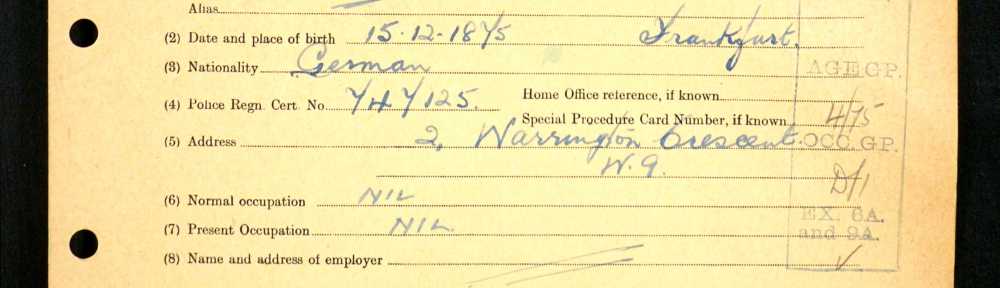 Alias
(2) Date and place of birth 15-12-1875 Frankfurt.
(3) Nationality German
AGE GP.
(4) Police Regn. Cert. No. 747125. Home Office reference, if known
Special Procedure Card Number, if known
4/75
(5) Address 2, Warrington Crescent. OCC. GP.
W.9.
D/1
(6) Normal occupation NIL
EX. 6A.
(7) Present Occupation NIL
and 9A.
(8) Name and address of employer